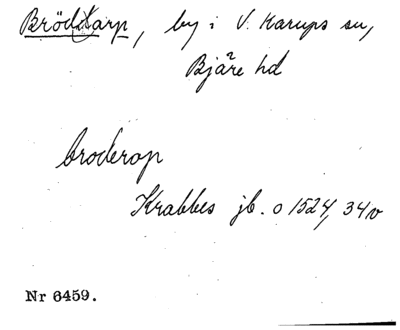 Brödtarp, by i V. Karups sn,
Bjäre hd
broderop
Krabbes jb. o 1524, 34v
Nr 6459.